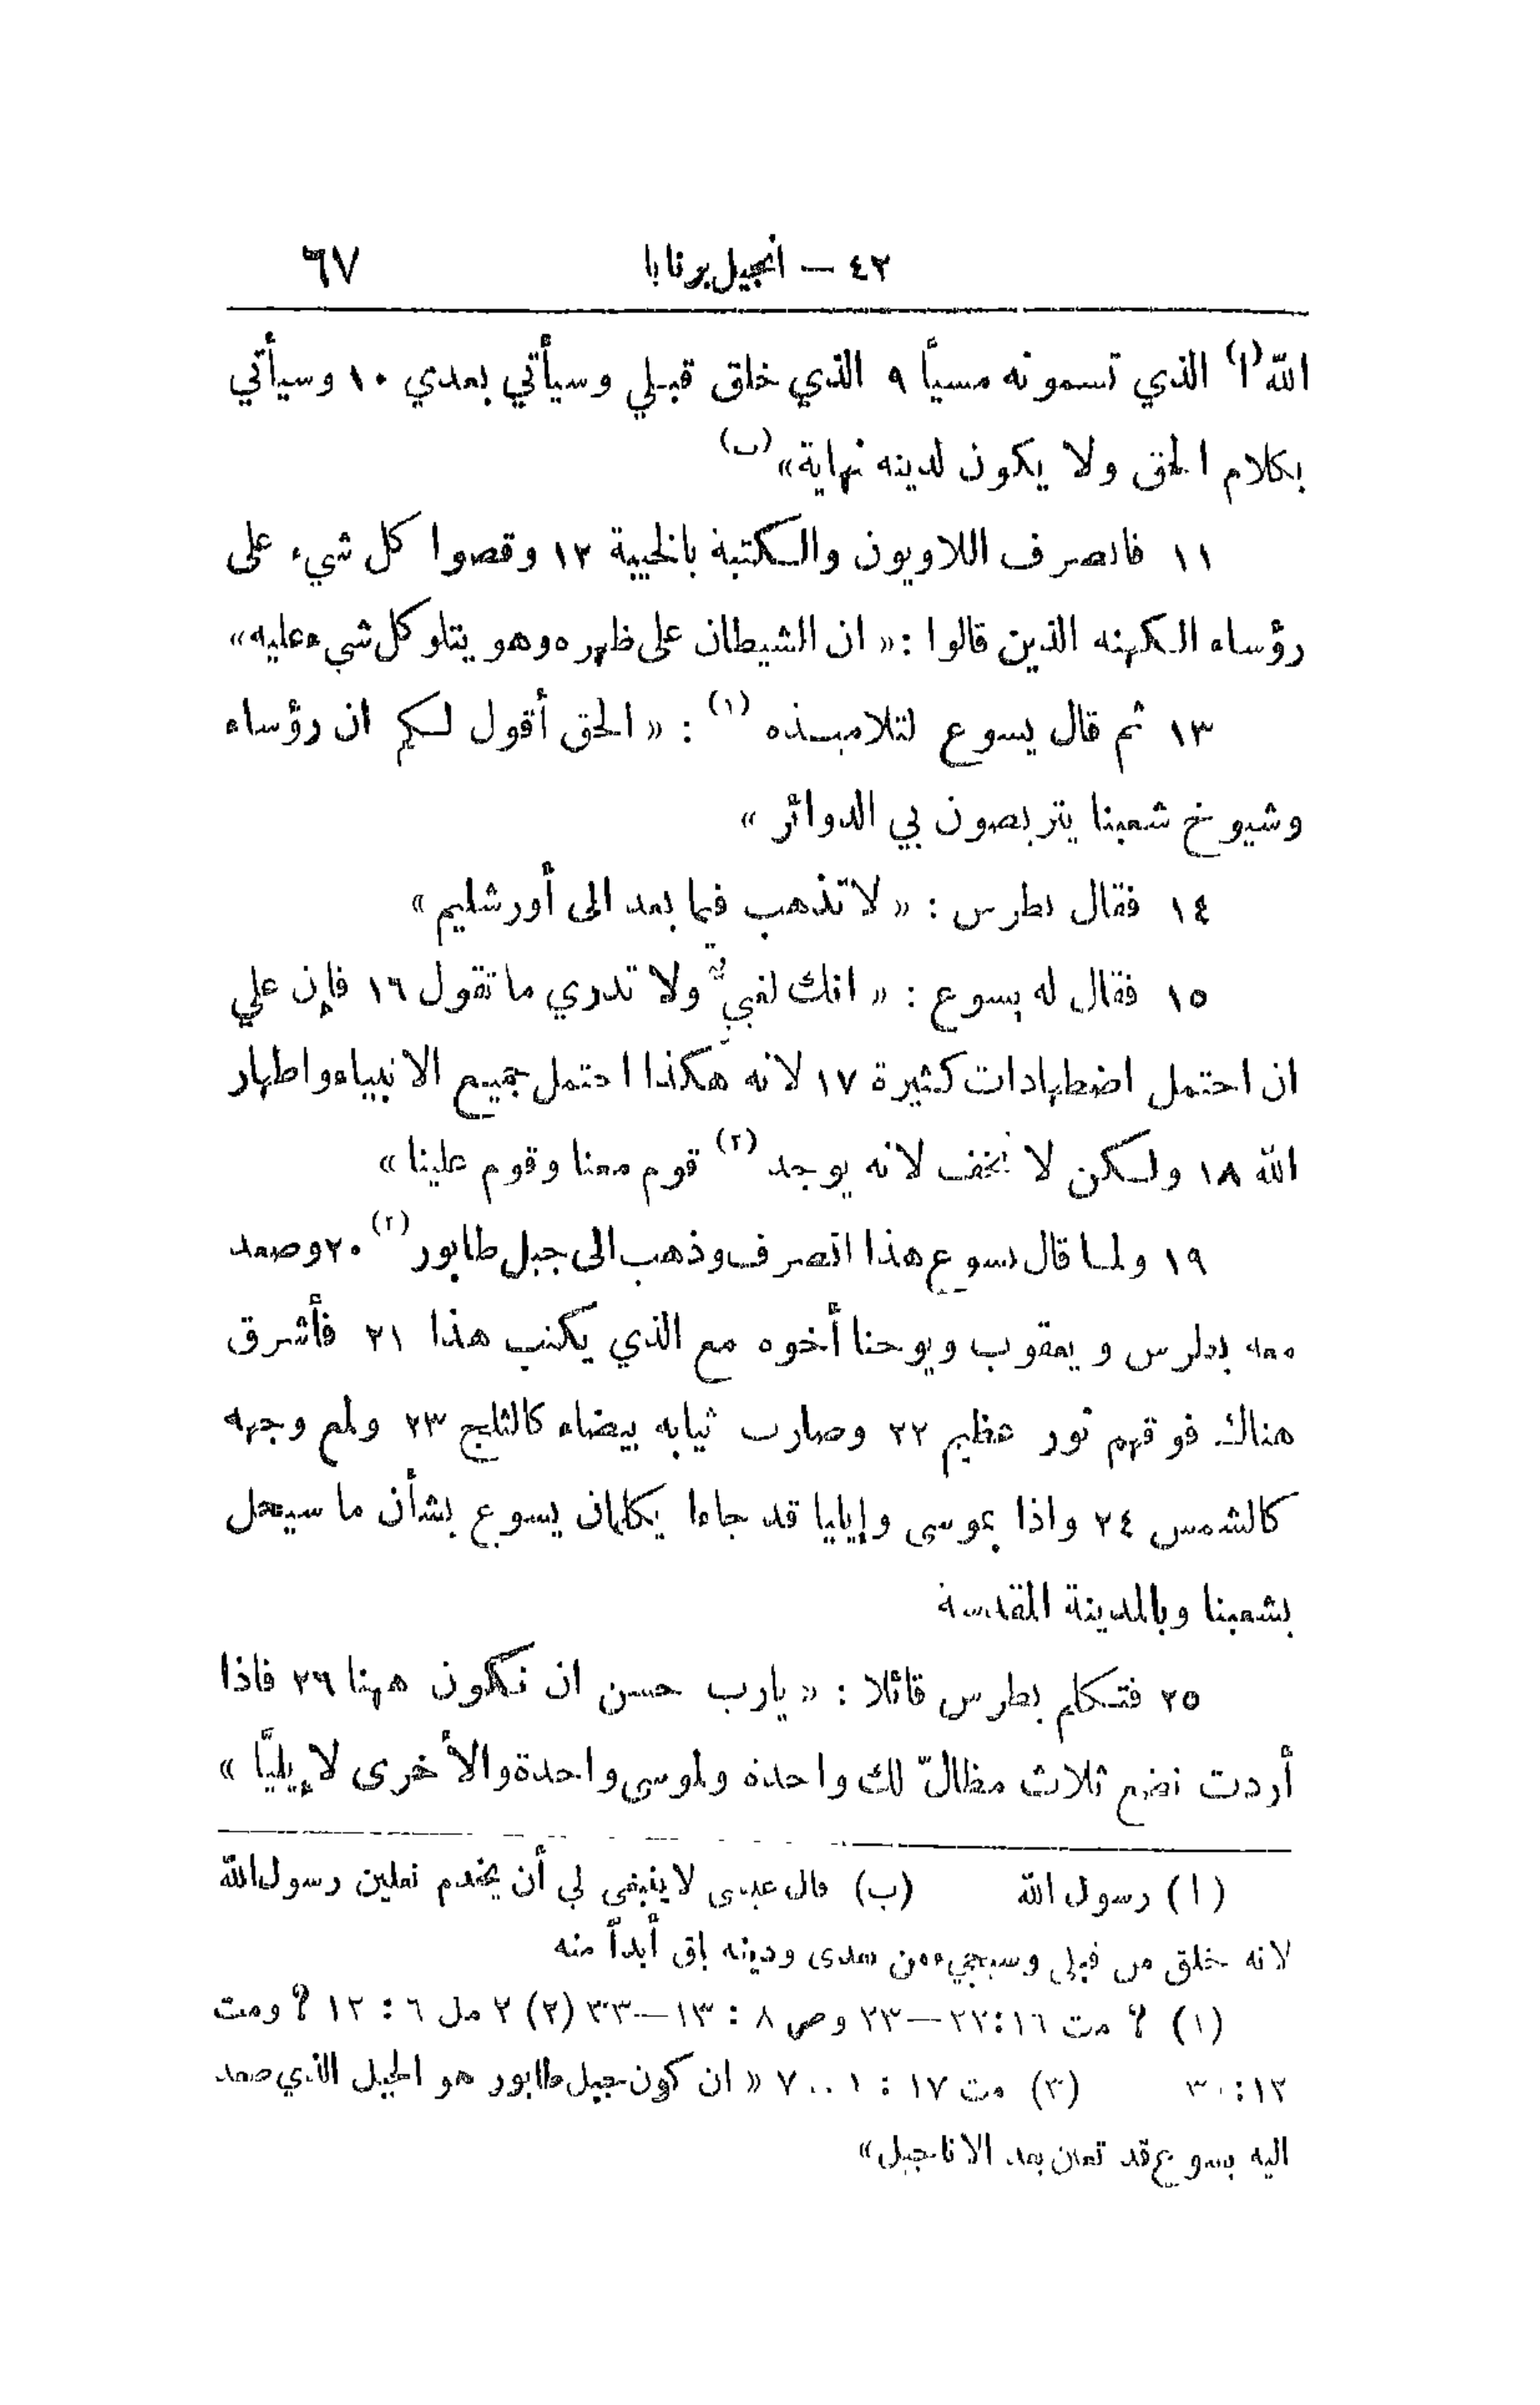 ٤٢ — انجيل برنابا ٦٧
الله (ا) الذي تسمونه مسيأ ٩ الذي خلق قبلي وسيأتي بعدي ١٠ وسيأتي
بكلام الحق ولا يكون لدينه نهاية» (ب)
١١ فانصرف اللاويون والكتبة بالخيبة ١٢ وقصوا كل شيء على
رؤساء الكهنه الذين قالوا : « ان الشيطان على ظهره وهو يتلو كل شيء عليه »
١٣ ثم قال يسوع لتلاميذه (١) : « الحق أقول لكم ان رؤساء
وشيوخ شعبنا يتربصون بي الدوائر »
١٤ فقال بطرس : « لا تذهب فيما بعد الى أورشليم »
١٥ فقال له يسوع : « انك لغبيٌّ ولا تدري ما تقول ١٦ فإن علي
ان احتمل اضطهادات كثيرة ١٧ لانه هكذا احتمل جميع الانبياء واطهار
الله ١٨ ولكن لا تخف لانه يوجد (٢) قوم معنا وقوم علينا »
١٩ ولما قال يسوع هذا انصرف وذهب الى جبل طابور (٣) ٢٠ وصعد
معه بطرس ويعقوب ويوحنا أخوه مع الذي يكتب هذا ٢١ فأشرق
هناك فوقهم نور عظيم ٢٢ وصارت ثيابه بيضاء كالثلج ٢٣ ولمع وجهه
كالشمس ٢٤ واذا بموسى وإيليا قد جاءا يكلمان يسوع بشأن ما سيحل
بشعبنا وبالمدينة المقدسة
٢٥ فتكلم بطرس قائلا : « يارب حسن ان نكون ههنا ٢٦ فاذا
أردت نضع ثلاث مظالّ لك واحدة ولموسى واحدة والأخرى لإيليَّا »
(ا) رسول الله (ب) قال عيسى لا ينبغي لي أن يخدم نعلين رسول الله
لانه خلق من قبلى وسيجيء من بعدى ودينه باق أبداً منه
(١) ؟ مت ١٦:٢٢—٢٣ وص ٨ : ١٣—٣٣ (٢) ٢ مل ٦ : ١٢ ؟ ومت
١٢:٣٠ (٣) مت ١٧ : ١ .. ٧ « ان كون جبل طابور هو الجبل الذي صعد
اليه يسوع قد تعين بعد الاناجيل »